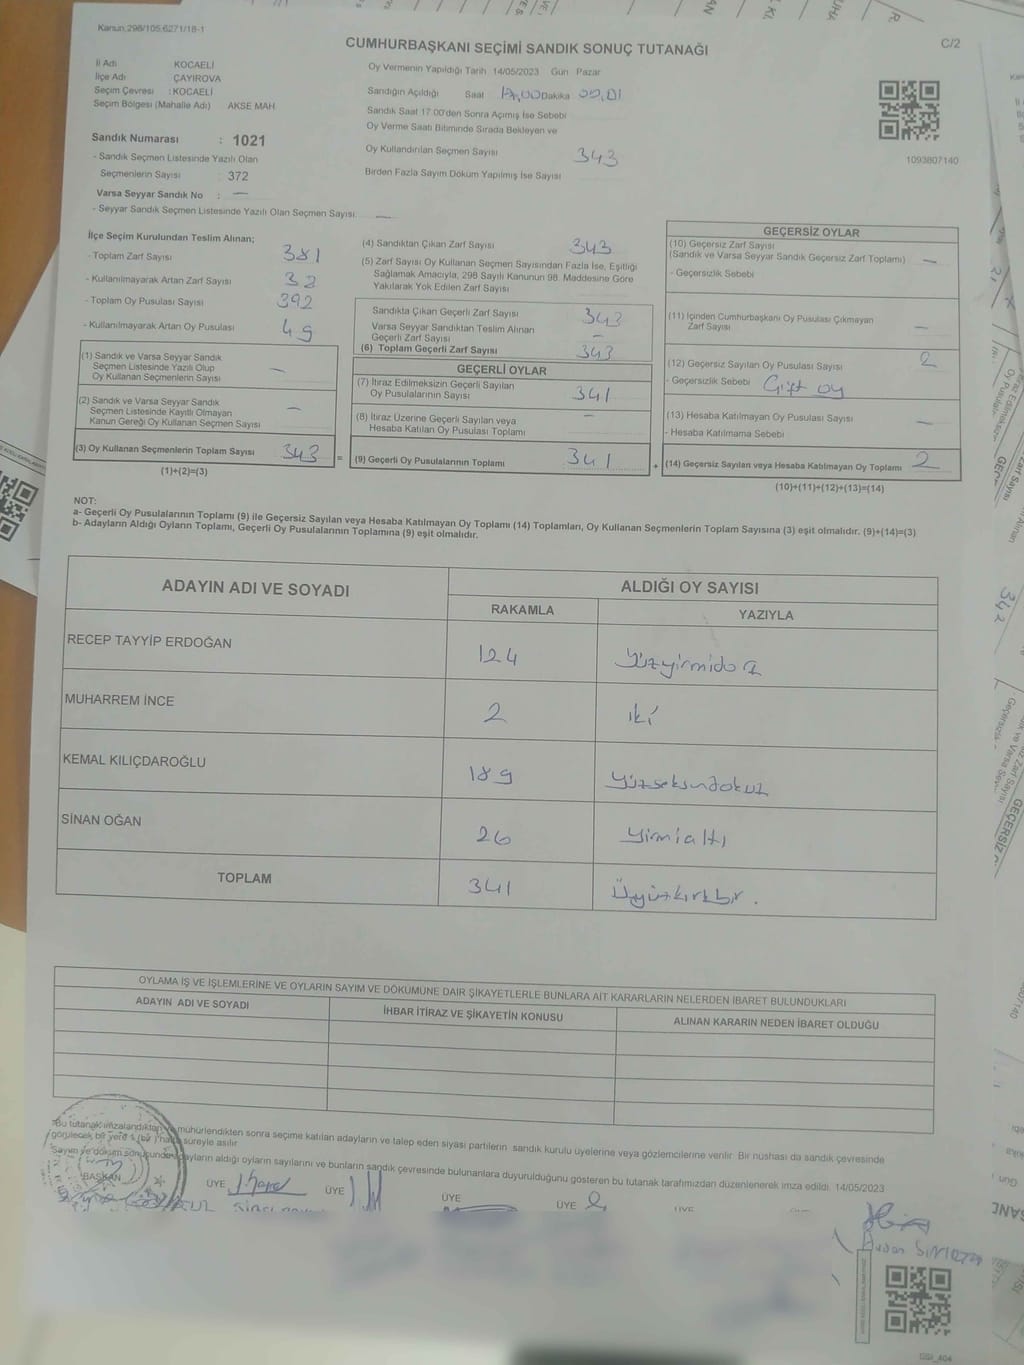 Kanun,298/105,6271/18-1
C/2
CUMHURBAŞKANI SEÇİMİ SANDIK SONUÇ TUTANAĞI
İl Adı KOCAELİ
İlçe Adı ÇAYIROVA
Seçim Çevresi : KOCAELİ
Seçim Bölgesi (Mahalle Adı) AKSE MAH.
Oy Vermenin Yapıldığı Tarih 14/05/2023 Gün Pazar
Sandığın Açıldığı Saat 17,00 Dakika
Sandık Saat 17:00'den Sonra Açımış İse Sebebi
Oy Verme Saati Bitiminde Sırada Bekleyen ve
Oy Kullandırılan Seçmen Sayısı 343
Birden Fazla Sayım Döküm Yapılmış İse Sayısı
1093807140
Sandık Numarası : 1021
- Sandık Seçmen Listesinde Yazılı Olan
Seçmenlerin Sayısı 372
Varsa Seyyar Sandık No : —
- Seyyar Sandık Seçmen Listesinde Yazılı Olan Seçmen Sayısı —
İlçe Seçim Kurulundan Teslim Alınan;
- Toplam Zarf Sayısı 381
- Kullanılmayarak Artan Zarf Sayısı
- Toplam Oy Pusulası Sayısı 392
- Kullanılmayarak Artan Oy Pusulası 49
(1) Sandık ve Varsa Seyyar Sandık
Seçmen Listesinde Yazılı Olup
Oy Kullanan Seçmenlerin Sayısı —
(2) Sandık ve Varsa Seyyar Sandık
Seçmen Listesinde Kayıtlı Olmayan
Kanun Gereği Oy Kullanan Seçmen Sayısı —
(3) Oy Kullanan Seçmenlerin Toplam Sayısı 343
(1)+(2)=(3)
(4) Sandıktan Çıkan Zarf Sayısı 343
(5) Zarf Sayısı Oy Kullanan Seçmen Sayısından Fazla İse, Eşitliği
Sağlamak Amacıyla, 298 Sayılı Kanunun 98. Maddesine Göre
Yakılarak Yok Edilen Zarf Sayısı
Sandıkta Çıkan Geçerli Zarf Sayısı 343
Varsa Seyyar Sandıktan Teslim Alınan
Geçerli Zarf Sayısı —
(6) Toplam Geçerli Zarf Sayısı 343
GEÇERLİ OYLAR
(7) İtiraz Edilmeksizin Geçerli Sayılan
Oy Pusulalarının Sayısı 341
(8) İtiraz Üzerine Geçerli Sayılan veya
Hesaba Katılan Oy Pusulası Toplamı —
= (9) Geçerli Oy Pusulalarının Toplamı 341 +
GEÇERSİZ OYLAR
(10) Geçersiz Zarf Sayısı
(Sandık ve Varsa Seyyar Sandık Geçersiz Zarf Toplamı) —
- Geçersizlik Sebebi
(11) İçinden Cumhurbaşkanı Oy Pusulası Çıkmayan
Zarf Sayısı —
(12) Geçersiz Sayılan Oy Pusulası Sayısı 2
- Geçersizlik Sebebi Çift oy
(13) Hesaba Katılmayan Oy Pusulası Sayısı —
- Hesaba Katılmama Sebebi
(14) Geçersiz Sayılan veya Hesaba Katılmayan Oy Toplamı 2
(10)+(11)+(12)+(13)=(14)
NOT:
a- Geçerli Oy Pusulalarının Toplamı (9) ile Geçersiz Sayılan veya Hesaba Katılmayan Oy Toplamı (14) Toplamları, Oy Kullanan Seçmenlerin Toplam Sayısına (3) eşit olmalıdır. (9)+(14)=(3)
b- Adayların Aldığı Oyların Toplamı, Geçerli Oy Pusulalarının Toplamına (9) eşit olmalıdır.
ADAYIN ADI VE SOYADI ALDIĞI OY SAYISI
RAKAMLA YAZIYLA
RECEP TAYYİP ERDOĞAN 124
MUHARREM İNCE 2 iki
KEMAL KILIÇDAROĞLU 189
SİNAN OĞAN 26 yirmialtı
TOPLAM 341
OYLAMA İŞ VE İŞLEMLERİNE VE OYLARIN SAYIM VE DÖKÜMÜNE DAİR ŞİKAYETLERLE BUNLARA AİT KARARLARIN NELERDEN İBARET BULUNDUKLARI
ADAYIN ADI VE SOYADI İHBAR İTİRAZ VE ŞİKAYETİN KONUSU ALINAN KARARIN NEDEN İBARET OLDUĞU
Bu tutanak imzalandıktan ve mühürlendikten sonra seçime katılan adayların ve talep eden siyasi partilerin sandık kurulu üyelerine veya gözlemcilerine verilir. Bir nüshası da sandık çevresinde
görülecek bir yere 1 (bir) hafta süreyle asılır.
Sayım ve döküm sonucunda adayların aldığı oyların sayılarını ve bunların sandık çevresinde bulunanlara duyurulduğunu gösteren bu tutanak tarafımızdan düzenlenerek imza edildi. 14/05/2023
BAŞKAN ÜYE ÜYE ÜYE ÜYE ÜYE